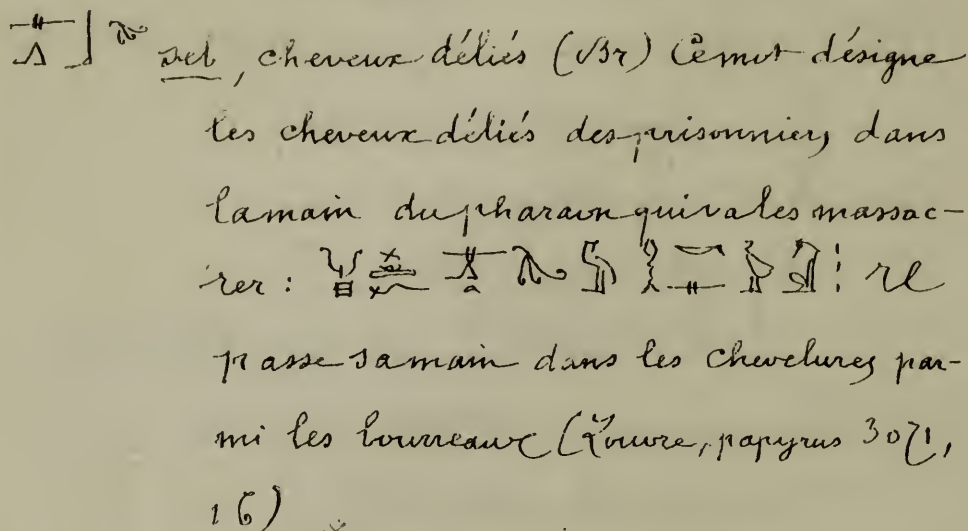 seb, cheveux déliés (Br) Ce mot désigne
les cheveux déliés des prisonniers dans
la main du pharaon qui va les massac-
rer : Il
passe sa main dans les chevelures par-
mi les bourreaux (Louvre, papyrus 3071,
16)